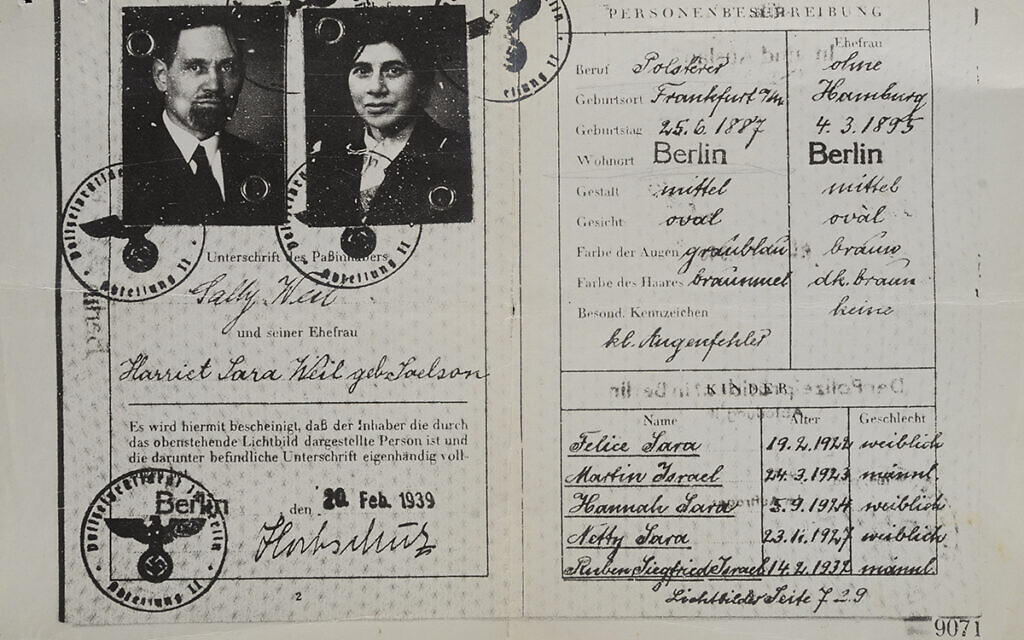 Unterschrift des Paßinhabers
Sally Weil
und seiner Ehefrau
Harriet Sara Weil geb. Joelson
Es wird hiermit bescheinigt, daß der Inhaber die durch
das obenstehende Lichtbild dargestellte Person ist und
die darunter befindliche Unterschrift eigenhändig voll-
Berlin
den 20. Feb. 1939
2
PERSONENBESCHREIBUNG
Ehefrau
Beruf Polsterer ohne
Geburtsort Frankfurt a/M Hamburg
Geburtstag 25.6.1887 4.3.1895
Wohnort Berlin Berlin
Gestalt mittel mittel
Gesicht oval oval
Farbe der Augen graublau braun
Farbe des Haares braunmel dk. braun
Besond. Kennzeichen keine
kl. Augenfehler
KINDER
Name Alter Geschlecht
Felice Sara 19.2.1922 weiblich
Martin Israel 24.3.1923 männl.
Hannah Sara 3.9.1924 weiblich
Netty Sara 23.11.1927 weiblich
Ruben Siegfried Israel 14.2.1932 männl.
Lichtbilder Seite 7 u 9
9071